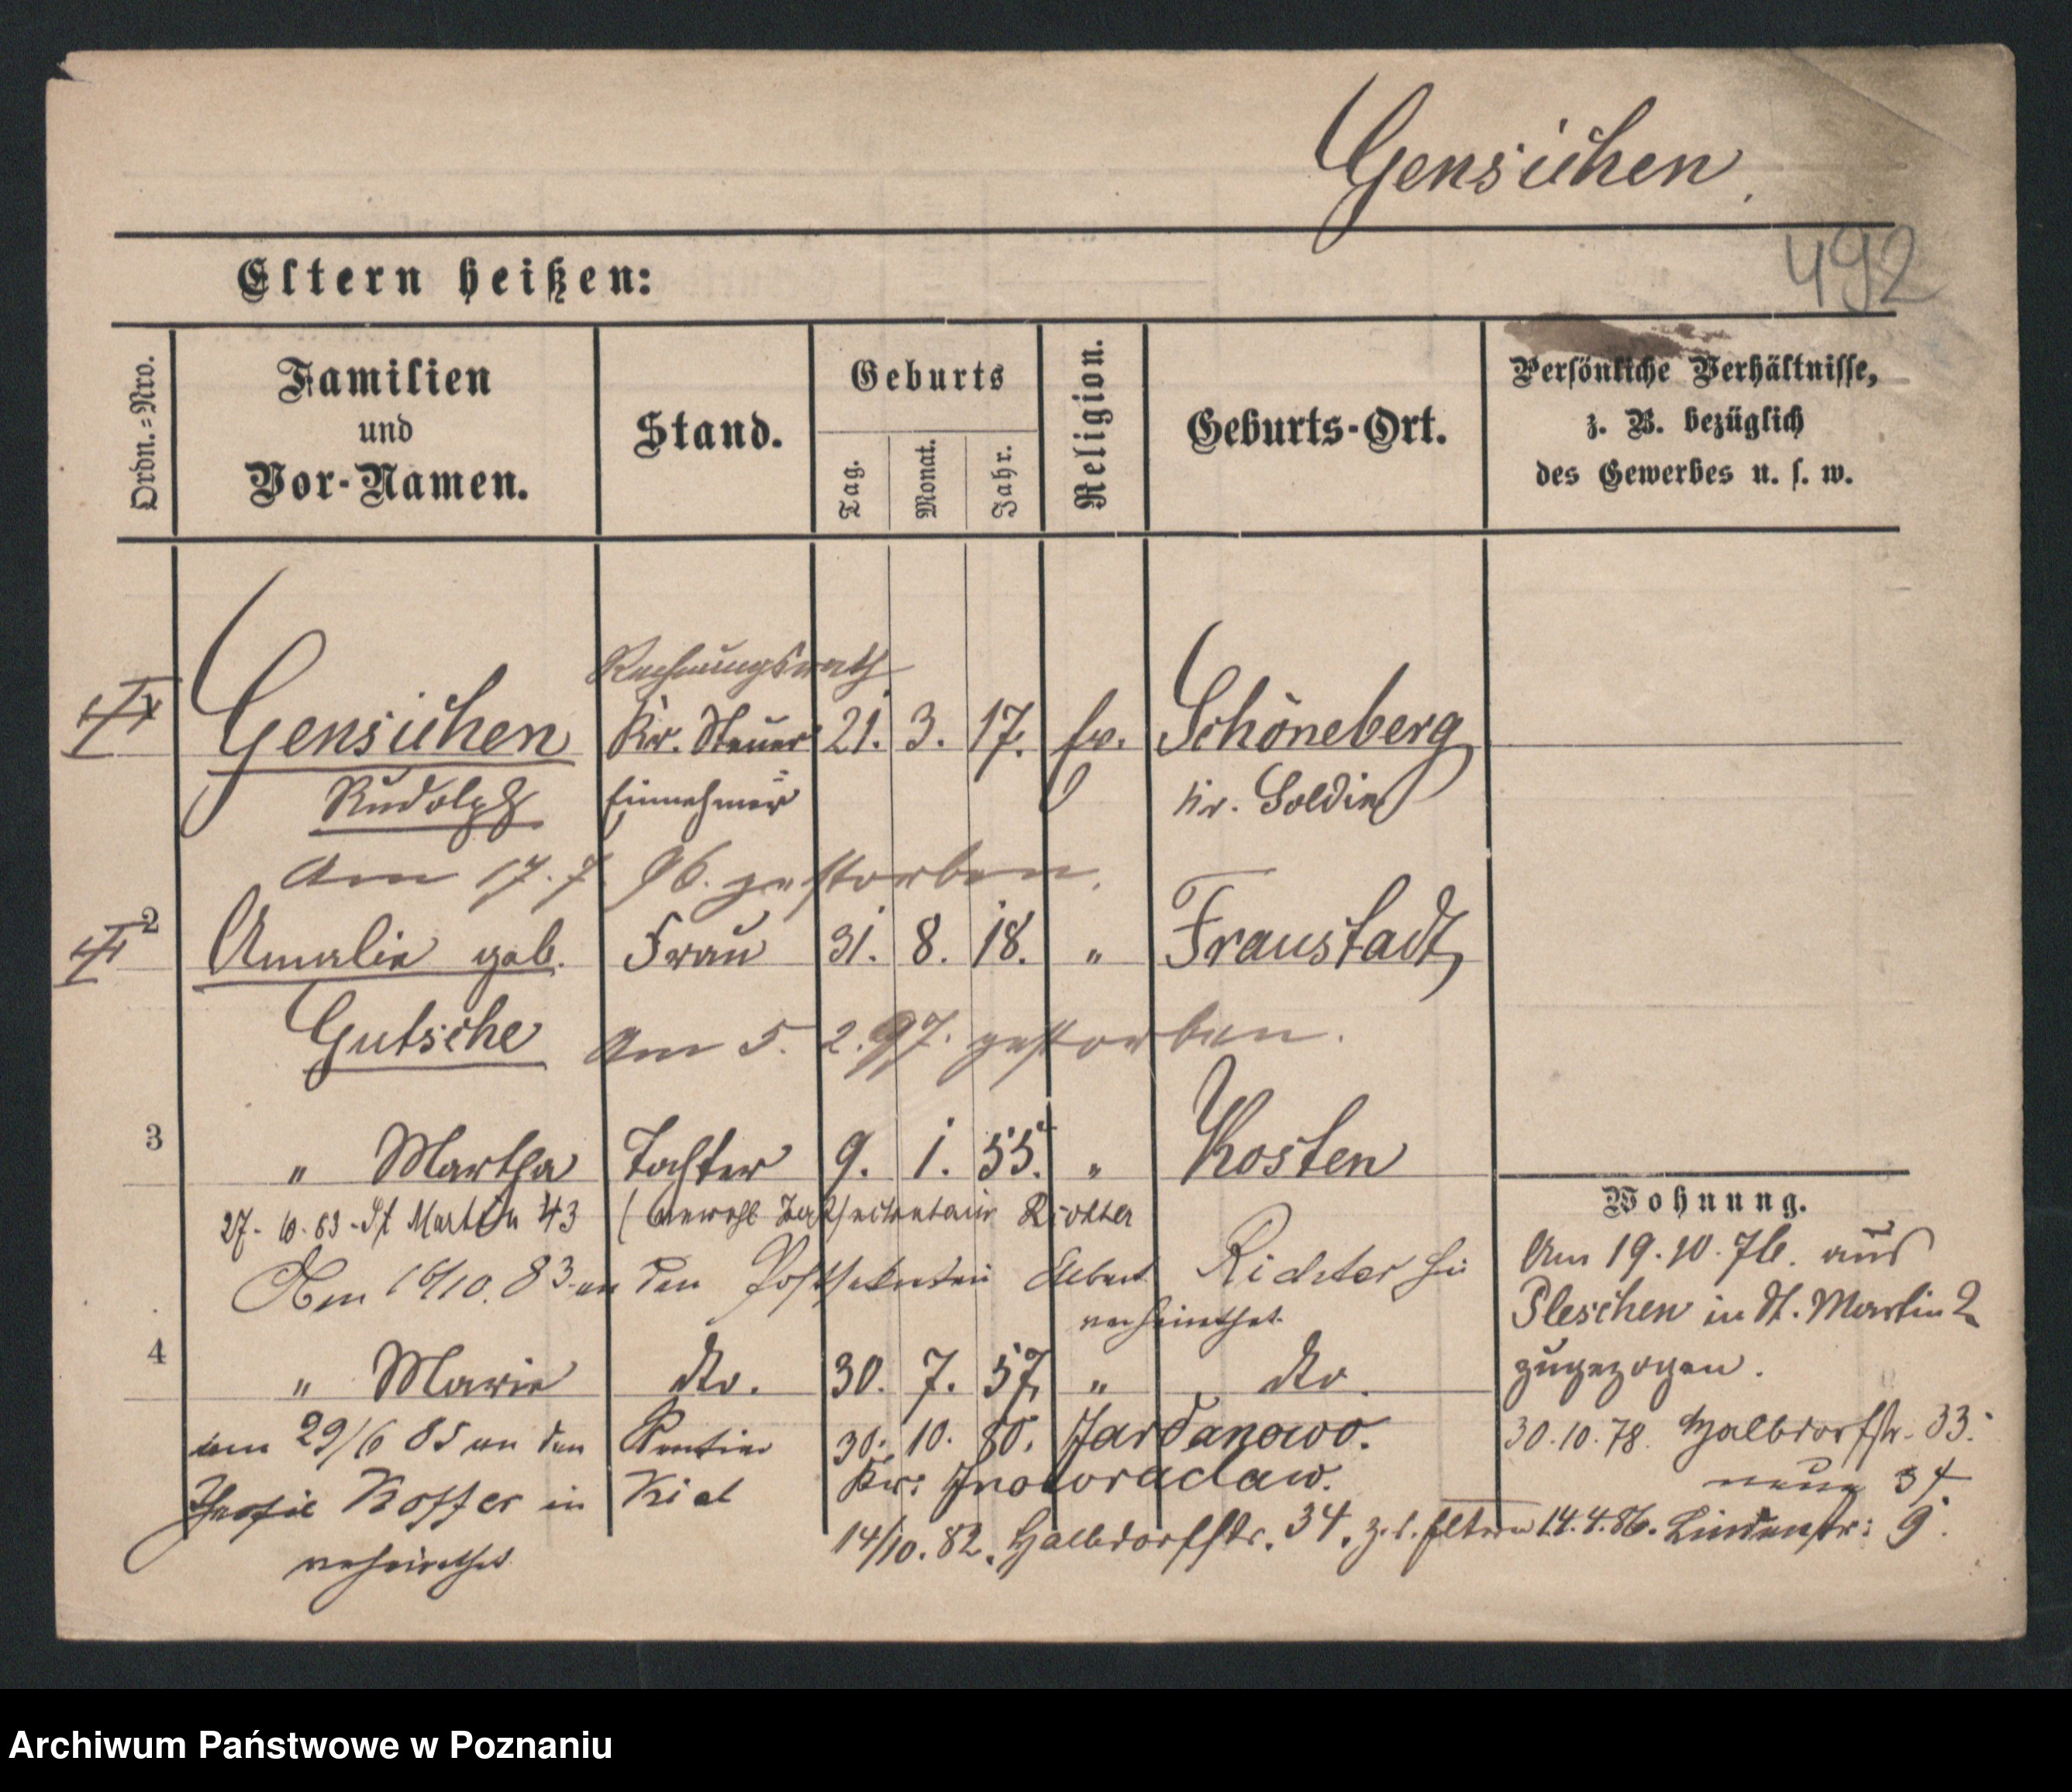 Gensichen
492
Eltern heißen:
Ordn.-Nro.
Familien
und
Vor-Namen.
Stand.
Geburts
Tag.
Monat.
Jahr.
Religion.
Geburts-Ort.
Persönliche Verhältnisse,
z. B. bezüglich
des Gewerbes u. s. w.
Rechnungsrath
Gensichen Kr. Steuer 21. 3. 17. ev. Schöneberg
Rudolph Einnehmer Kr. Soldin
Am 17. 7. 96. gestorben.
2
Amalie geb. Frau 31. 8. 18. " Fraustadt
Gutsche Am 5. 2. 97. gestorben.
3
" Martha Tochter 9. 1. 55. " Kosten
27. 10. 83 - St Martin 43 Richter
Am 16/10. 83 an den Postsekretair Richter hier
verheirathet
4
" Marie do. 30. 7. 57. " do.
am 29/6 85 an den Rentier 30. 10. 80. Jardanowo.
Koffer in Kiel Kr: Inowraclaw.
verheirathet
14/10. 82. Halbdorfstr. 34. z. d. Eltern 14. 4. 86. Lindenstr: 9.
Wohnung.
Am 19. 10. 76. aus
Pleschen in St. Martin 2
zugezogen.
30. 10. 78. Halbdorfstr. 33.
neue 34
Archiwum Państwowe w Poznaniu